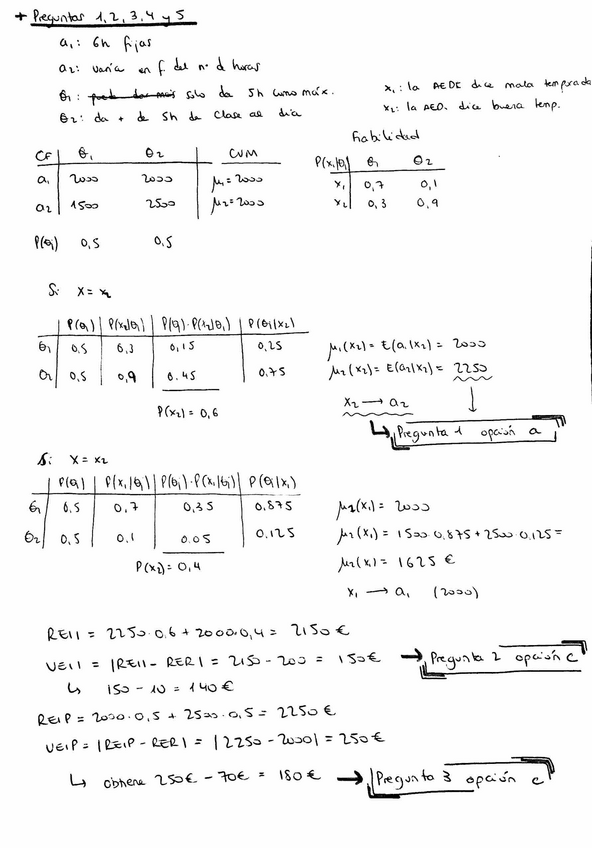 + Preguntas 1, 2, 3, 4 y 5
a₁: 6h fijas
a₂: varía en f. del nº d horas
θ₁: puede dar más solo da 5h como máx.
θ₂: da + de 5h de clase al día
x₁: la AEDE dice mala temporada
x₂: la AED. dice buena temp.
Fiabilidad
CF | θ₁ θ₂ | CUM
a₁ | 2000 2000 | μ₁ = 2000
a₂ | 1500 2500 | μ₂ = 2000
P(θi) 0,5 0,5
P(x|θ) | θ₁ θ₂
x₁ | 0,7 0,1
x₂ | 0,3 0,9
Si X = x₂
P(θi) | P(x₂|θi) | P(θi)·P(x₂|θi) | P(θi|x₂)
θ₁ | 0,5 | 0,3 | 0,15 | 0,25
θ₂ | 0,5 | 0,9 | 0.45 | 0,75
P(x₂) = 0,6
μ₁(x₂) = E(a₁|x₂) = 2000
μ₂(x₂) = E(a₂|x₂) = 2250
x₂ → a₂
↳ Pregunta 1 opción a
Si: X = x₂
P(θi) | P(x₁|θi) | P(θi)·P(x₁|θi) | P(θi|x₁)
θ₁ | 0,5 | 0,7 | 0,35 | 0,875
θ₂ | 0,5 | 0,1 | 0.05 | 0.125
P(x₂) = 0,4
μ₂(x₁) = 2000
μ₂(x₁) = 1500·0,875 + 2500·0,125 =
μ₂(x₁) = 1625 €
x₁ → a₁ (2000)
REII = 2250·0,6 + 2000·0,4 = 2150 €
VEII = |REII - RER| = 2150 - 200 = 150 € → Pregunta 2 opción c
↳ 150 - 10 = 140 €
REIP = 2000·0,5 + 2500·0,5 = 2250 €
VEIP = |REIP - RER| = |2250 - 2000| = 250 €
↳ obtiene 250 € - 70 € = 180 € → Pregunta 3 opción c